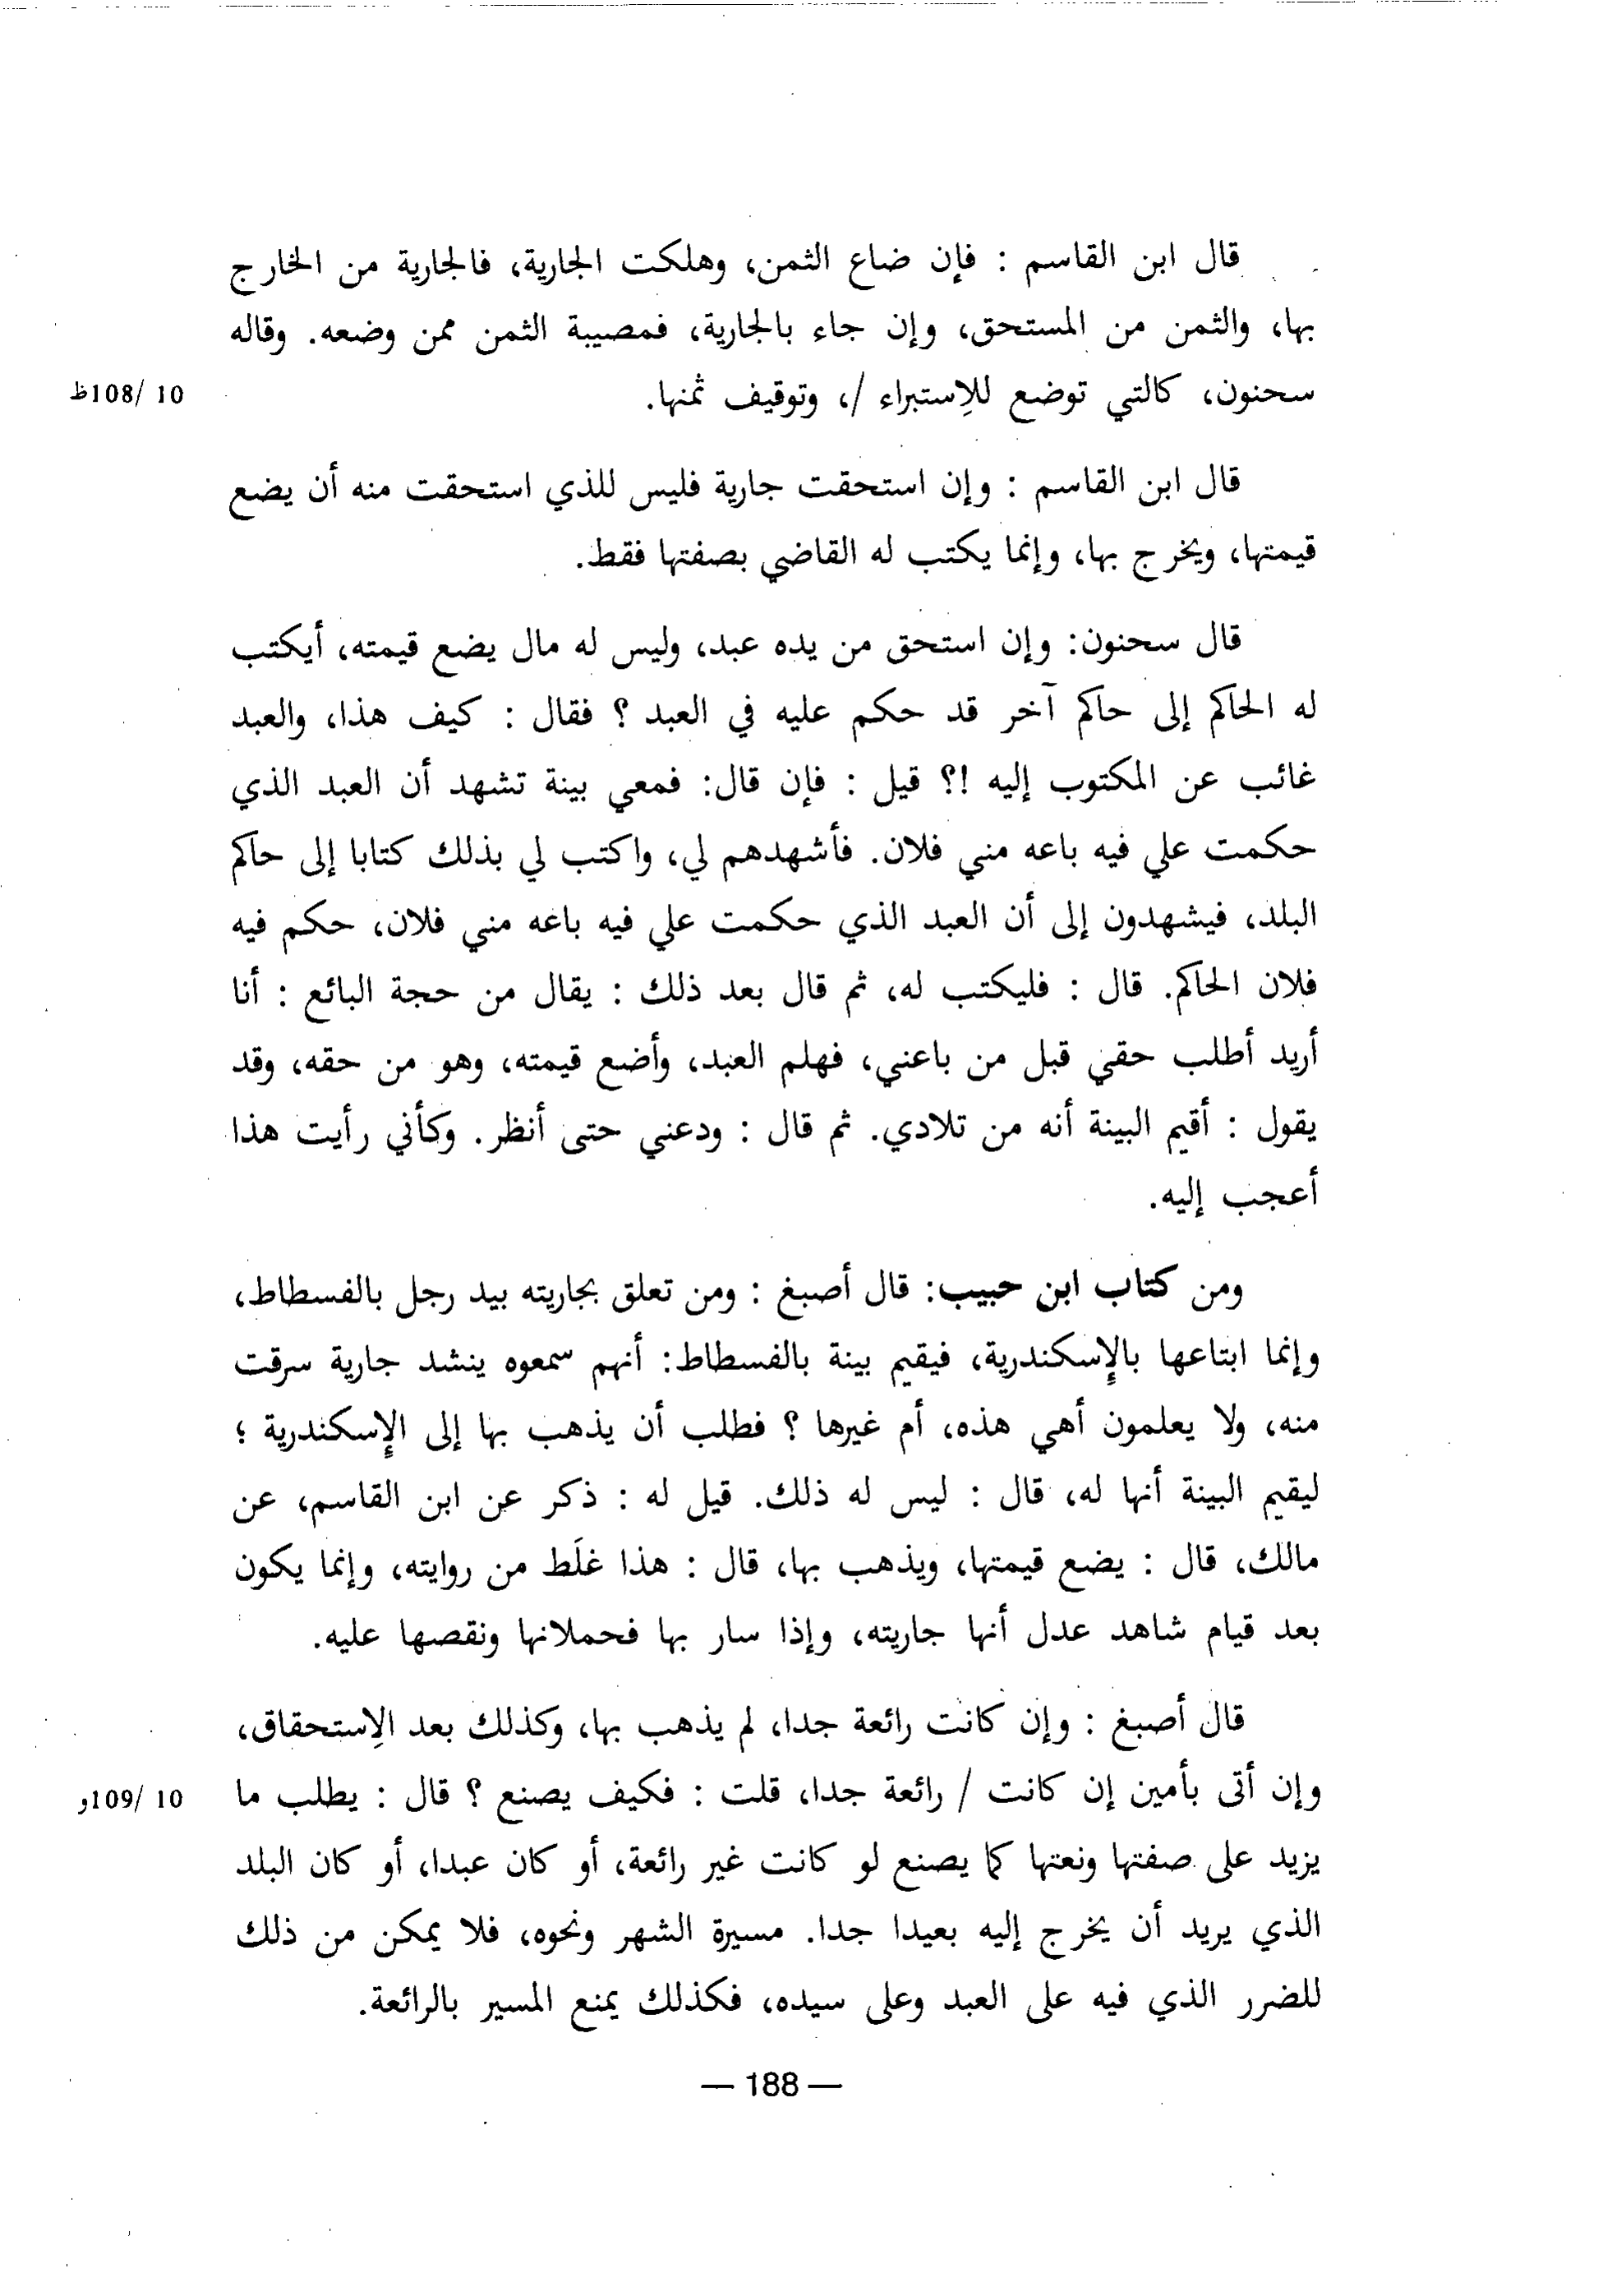 قال ابن القاسم : فإن ضاع الثمن، وهلكت الجارية، فالجارية من الخارج
بها، والثمن من المستحق، وإن جاء بالجارية، فمصيبة الثمن ممن وضعه. وقاله
سحنون، كالتي توضع للاِستبراء /، وتوقيف ثمنها.
10 /108ظ
قال ابن القاسم : وإن استحقت جارية فليس للذي استحقت منه أن يضع
قيمتها، ويخرج بها، وإنما يكتب له القاضي بصفتها فقط.
قال سحنون: وإن استحق من يده عبد، وليس له مال يضع قيمته، أيكتب
له الحاكم إلى حاكم آخر قد حكم عليه في العبد ؟ فقال : كيف هذا، والعبد
غائب عن المكتوب إليه !؟ قيل : فإن قال: فمعي بينة تشهد أن العبد الذي
حكمت علي فيه باعه مني فلان. فأشهدهم لي، واكتب لي بذلك كتابا إلى حاكم
البلد، فيشهدون إلى أن العبد الذي حكمت علي فيه باعه مني فلان، حكم فيه
فلان الحاكم. قال : فليكتب له، ثم قال بعد ذلك : يقال من حجة البائع : أنا
أريد أطلب حقي قبل من باعني، فهلم العبد، وأضع قيمته، وهو من حقه، وقد
يقول : أقيم البينة أنه من تلادي. ثم قال : ودعني حتى أنظر. وكأني رأيت هذا
أعجب إليه.
ومن كتاب ابن حبيب: قال أصبغ : ومن تعلق بجاريته بيد رجل بالفسطاط،
وإنما ابتاعها بالإسكندرية، فيقيم بينة بالفسطاط: أنهم سمعوه ينشد جارية سرقت
منه، ولا يعلمون أهي هذه، أم غيرها ؟ فطلب أن يذهب بها إلى الإسكندرية ؛
ليقيم البينة أنها له، قال : ليس له ذلك. قيل له : ذكر عن ابن القاسم، عن
مالك، قال : يضع قيمتها، ويذهب بها، قال : هذا غلَط من روايته، وإنما يكون
بعد قيام شاهد عدل أنها جاريته، وإذا سار بها فحملانها ونقصها عليه.
قال أصبغ : وإن كانت رائعة جدا، لم يذهب بها، وكذلك بعد الاِستحقاق،
وإن أتى بأمين إن كانت / رائعة جدا، قلت : فكيف يصنع ؟ قال : يطلب ما
10 /109و
يزيد على صفتها ونعتها كما يصنع لو كانت غير رائعة، أو كان عبدا، أو كان البلد
الذي يريد أن يخرج إليه بعيدا جدا. مسيرة الشهر ونحوه، فلا يمكن من ذلك
للضرر الذي فيه على العبد وعلى سيده، فكذلك يمنع المسير بالرائعة.
— 188 —